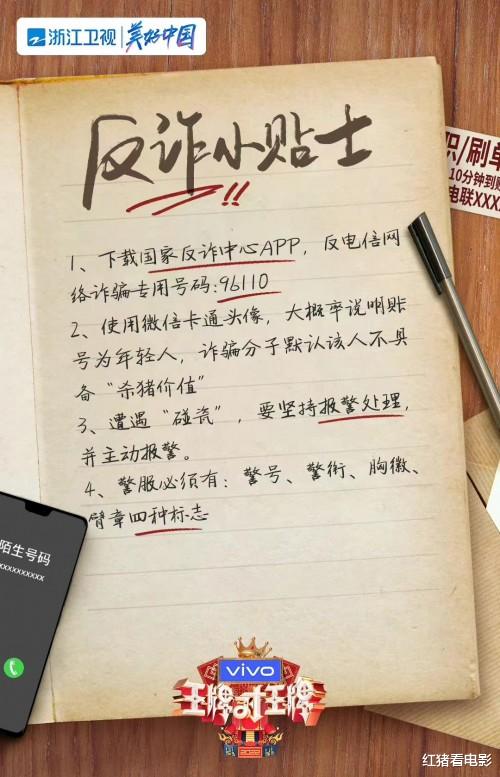 浙江卫视 美好中国
反诈小贴士!!
职/刷单
10分钟到账
电联XXX
1、下载国家反诈中心APP，反电信网
络诈骗专用号码:96110
2、使用微信卡通头像，大概率说明账
号为年轻人，诈骗分子默认该人不具
备“杀猪价值”
3、遭遇“碰瓷”，要坚持报警处理，
并主动报警。
4、警服必须有：警号、警衔、胸徽、
臂章四种标志
陌生号码
xxxxxxxxxx
vivo
王牌对王牌
2022
红猪看电影